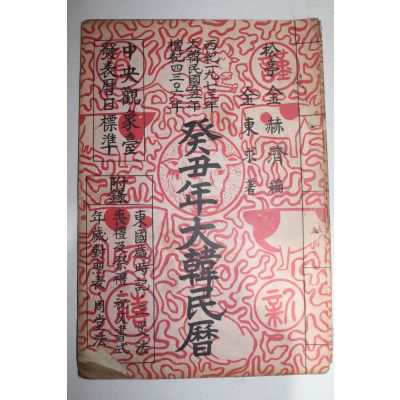 松亭 金赫濟 編
金東求 著
西紀一九七三年
大韓民國五十五年
檀紀四三〇六年
癸丑年大韓民曆
中央觀象臺
發表曆日標準
附錄
東國歲時記・三災法
喪禮及祭禮・祝文書式
年歲對照表・周堂法
新